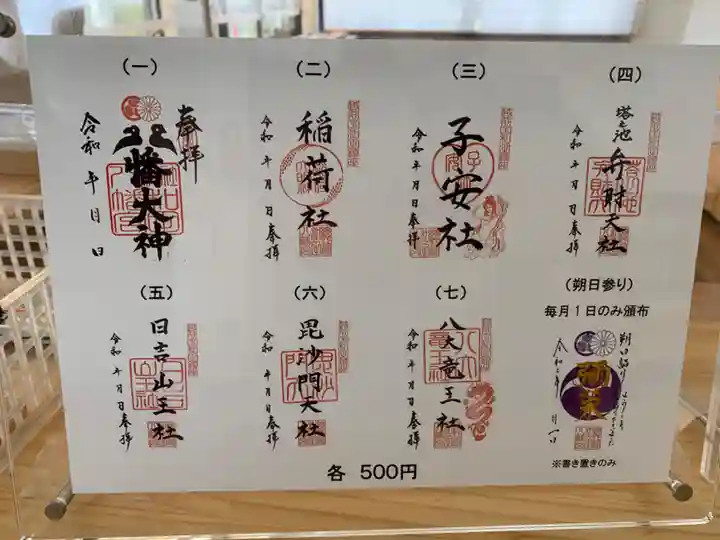 (一)
奉拝
八幡大神
令和 年 月 日
(二)
稲荷社
令和 年 月 日奉拝
(三)
子安社
令和 年 月 日奉拝
(四)
塔之池
弁財天社
令和 年 月 日奉拝
(五)
日吉山王社
令和 年 月 日奉拝
(六)
毘沙門天社
令和 年 月 日奉拝
(七)
八大竜王社
令和 年 月 日奉拝
(朔日参り)
毎月1日のみ頒布
朔日詣り
※書き置きのみ
各 500円